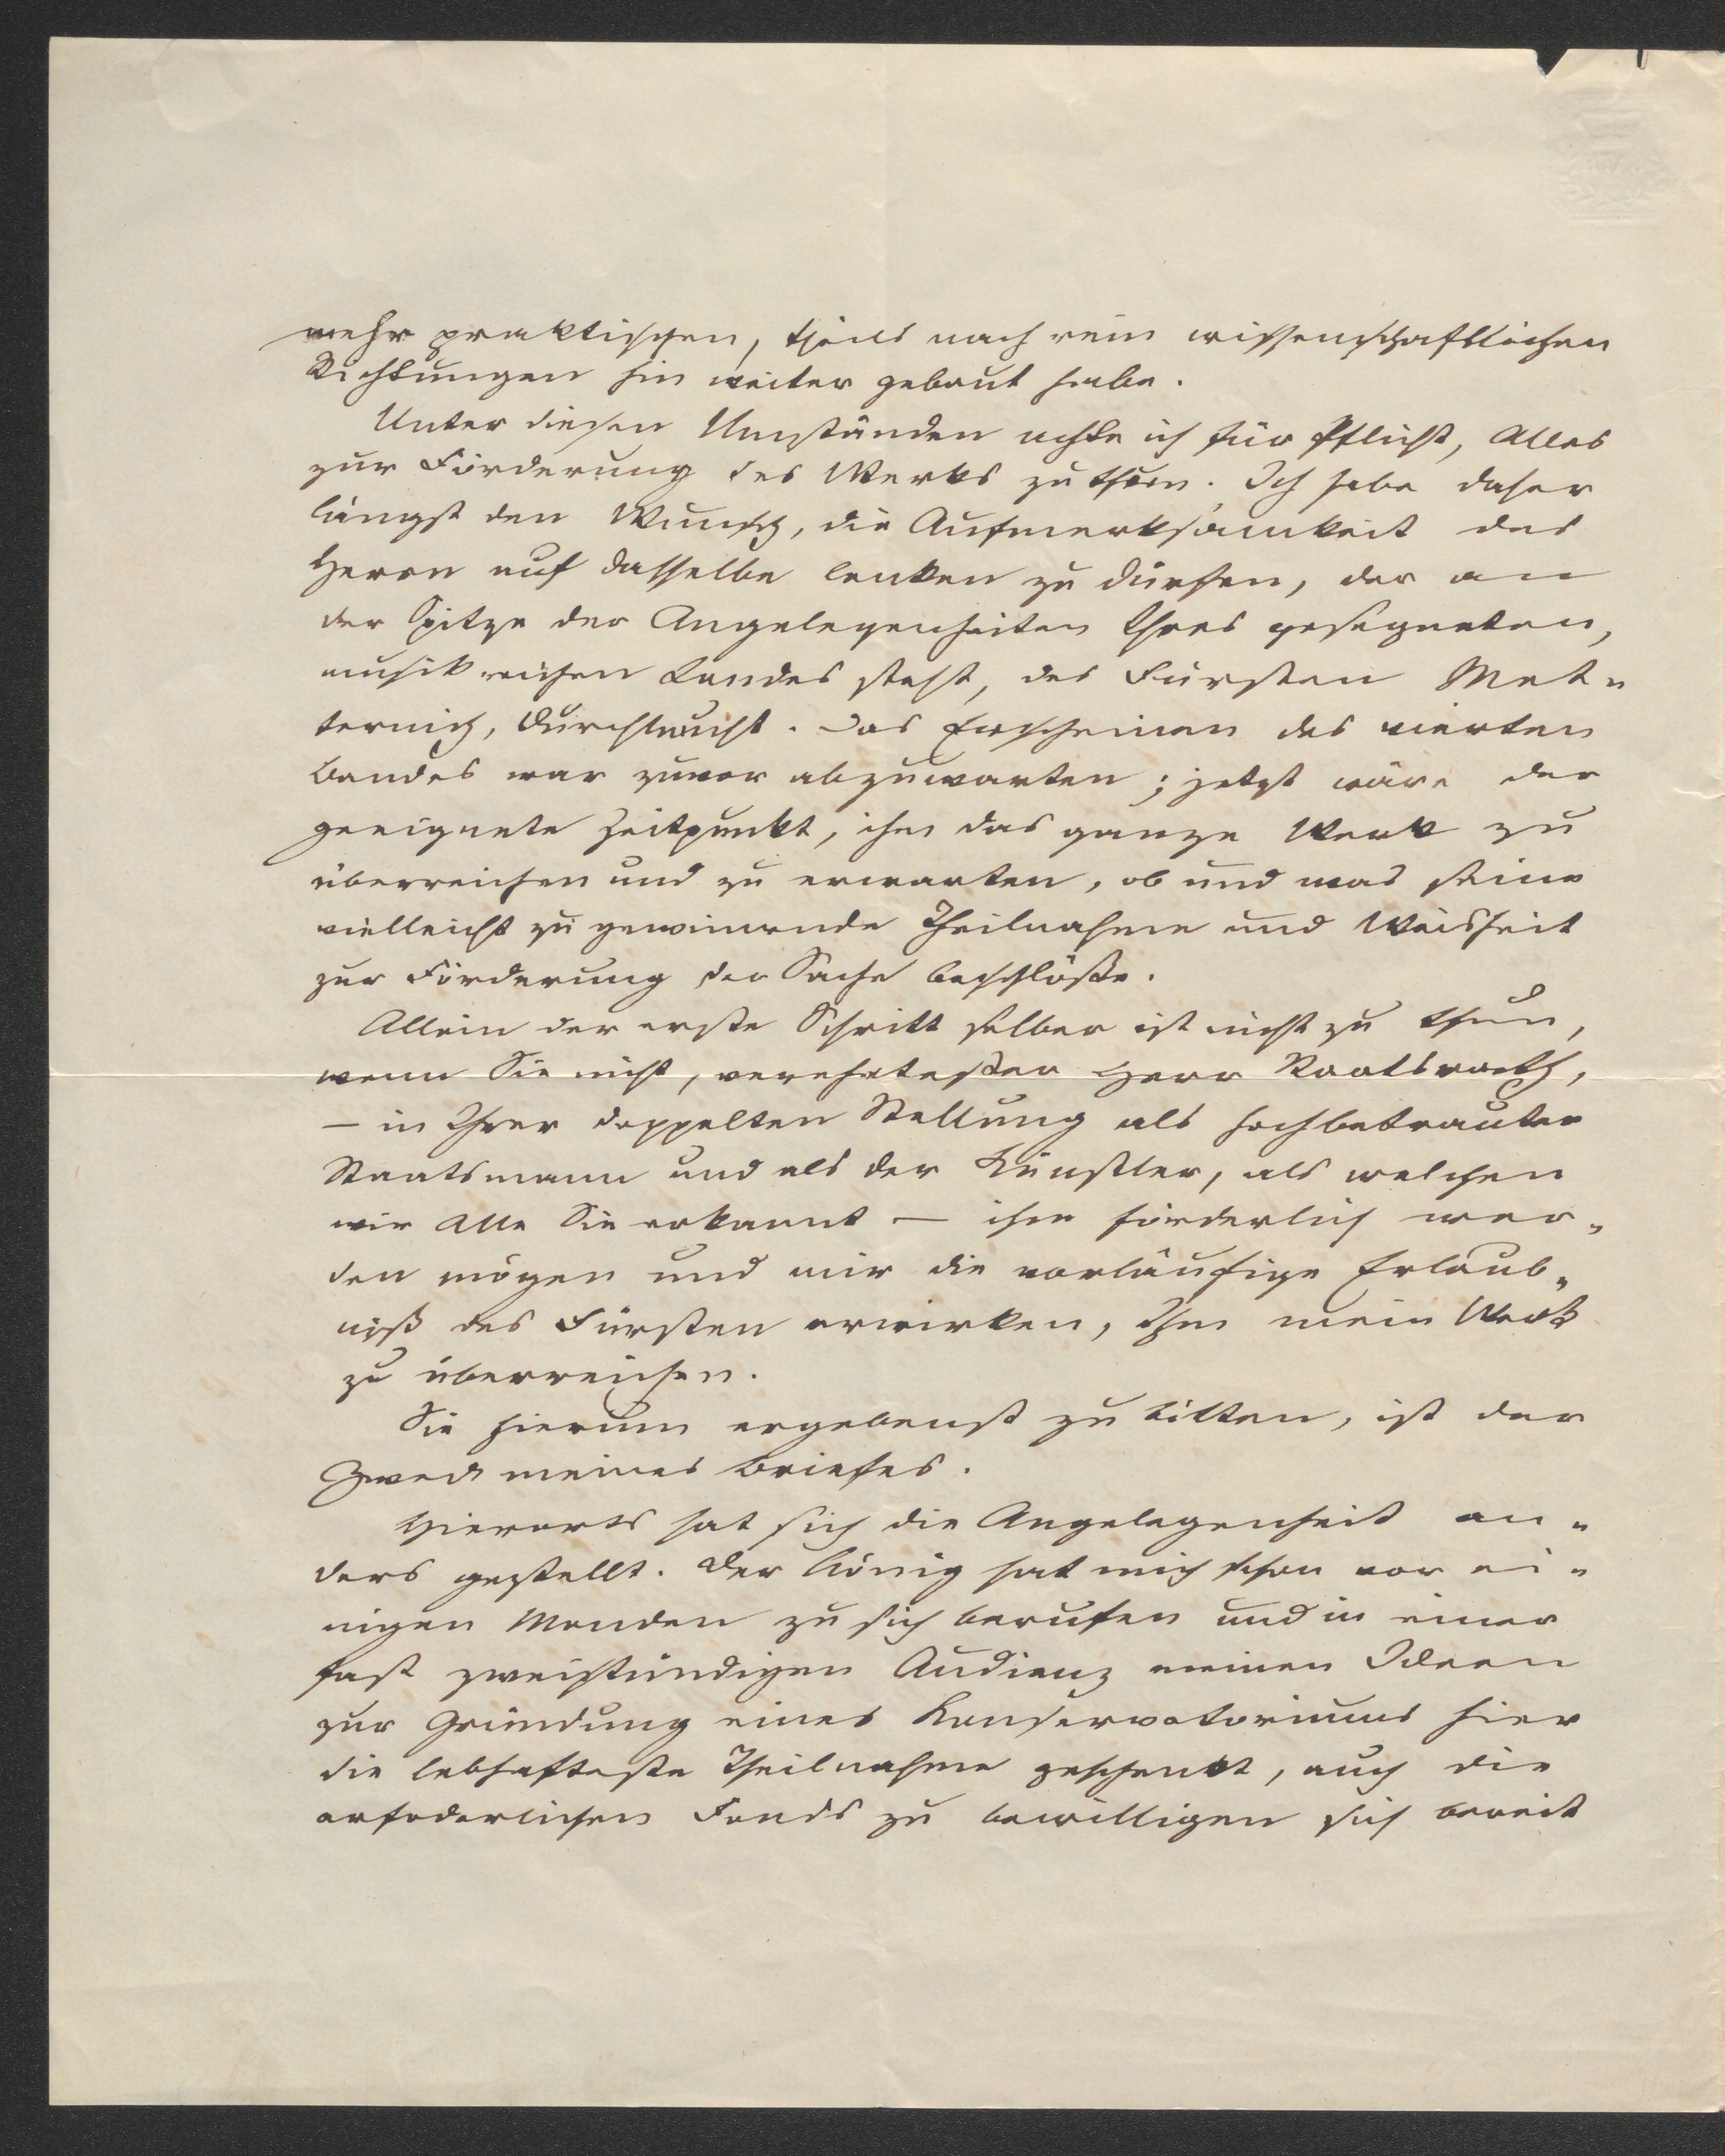 mehr praktischen, theils nach rein wissenschaftlichen
Richtungen hin weiter gebaut habe.
Unter diesen Umständen achte ich für Pflicht, Alles
zur Förderung des Werks zu thun. Ich habe daher
längst den Wunsch, die Aufmerksamkeit des
Herrn auf dasselbe lenken zu dürfen, der an
der Spitze der Angelegenheiten Ihres gesegneten,
musikreichen Landes steht, des Fürsten Met-
ternich, Durchlaucht. Das Erscheinen des vierten
Bandes war zuvor abzuwarten; jetzt wäre der
geeignete Zeitpunkt, ihm das ganze Werk zu
überreichen und zu erwarten, ob und was seine
vielleicht zu gewinnende Theilnahme und Weisheit
zur Förderung der Sache beschlösse.
Allein der erste Schritt selber ist nicht zu thun,
wenn Sie nicht, verehrtester Herr Staatsrath,
— in Ihrer doppelten Stellung als hochbetrauter
Staatsmann und als der Künstler, als welchen
wir Alle Sie erkannt — ihm förderlich wer-
den mögen und mir die vorläufige Erlaub-
niß des Fürsten erwirken, Ihm mein Werk
zu überreichen.
Sie hierum ergebenst zu bitten, ist der
Zweck meines Briefes.
Hierorts hat sich die Angelegenheit an-
ders gestellt. Der König hat mich schon vor ei-
nigen Monden zu sich berufen und in einer
fast zweistündigen Audienz meinen Ideen
zur Gründung eines Konservatoriums hier
die lebhafteste Theilnahme geschenkt, auch die
erfoderlichen Fonds zu bewilligen sich bereit